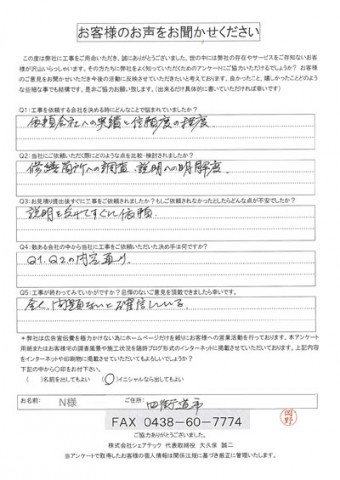 お客様のお声をお聞かせください
この度は弊社に工事をご用命いただき、誠にありがとうございました。世の中には弊社の存在やサービスをご存知ないお客
様が沢山いらっしゃいます。その方たちに弊社をよく知っていただくためのアンケートにご協力いただけるでしょうか？ お客様
のご意見をお聞かせいただき今後の活動に反映させていただきたいと考えております。良かったこと、嬉しかったことどのよう
な些細な事でも結構です。是非ご協力お願い致します。(出来るだけ具体的に書いていただければ幸いです)
Q1:工事を依頼する会社を決める時にどんなことで悩まれていましたか？
依頼会社への実績と信頼度の程度
Q2:当社にご依頼いただく際にどのような点を比較・検討されましたか？
修繕箇所への調査、説明への明解度
Q3:お見積り提出後すぐに工事を依頼されましたか？もしご依頼されなかったとしたらどんな点が不安でしたか？
説明を受けてすぐに依頼
Q4:数ある会社の中から当社に工事をご依頼いただいた決め手は何ですか？
Q1.Q2の内容通り
Q5:工事が終わってみていかがですか？忌憚のないご意見を頂戴できましたら幸いです。
全く問題ないと確信している。
＊弊社は広告宣伝費を極力かけない為にホームページだけを頼りにお客様への営業活動を行っております。本アンケート
用紙またはお客様宅の調査風景や施工状況を随時ブログ形式のインターネットに掲載させていただいております。上記内容
をインターネットや印刷物に掲載させていただいてもよろしいでしょうか？
下記の中から〇印をお付け下さい。
( )名前を出してもよい (〇)イニシャルなら出してもよい
お名前: N様 ご住所: 四街道市
FAX 0438-60-7774
ご協力ありがとうございました。
株式会社シェアテック 代表取締役 大久保 誠二
当アンケートで取得したお客様の個人情報は関係法令に基づき厳正に管理いたします。